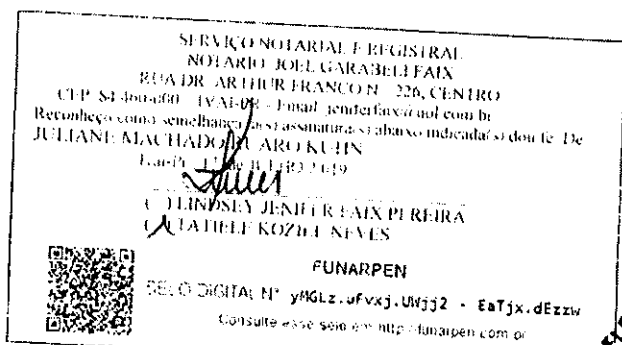 SERVIÇO NOTARIAL E REGISTRAL
NOTARIO JOEL GARABELI FAIX
RUA DR. ARTHUR FRANCO Nº 226, CENTRO
CEP 84460-000 - IVAÍ-PR - Email jeniferfaix@aol.com.br
Reconheço como semelhança a(s) assinatura(s) abaixo indicada(s) dou fé. De
JULIANE MACHADO KUHN
Ivaí-Pr
( ) LINDSEY JENIFER FAIX PEREIRA
( ) TATIELE KOZIEL NEVES
FUNARPEN
SELO DIGITAL Nº yMGLz.ufvxj.UWjj2 - EaTjx.dEzzw
Consulte esse selo em http://funarpen.com.br